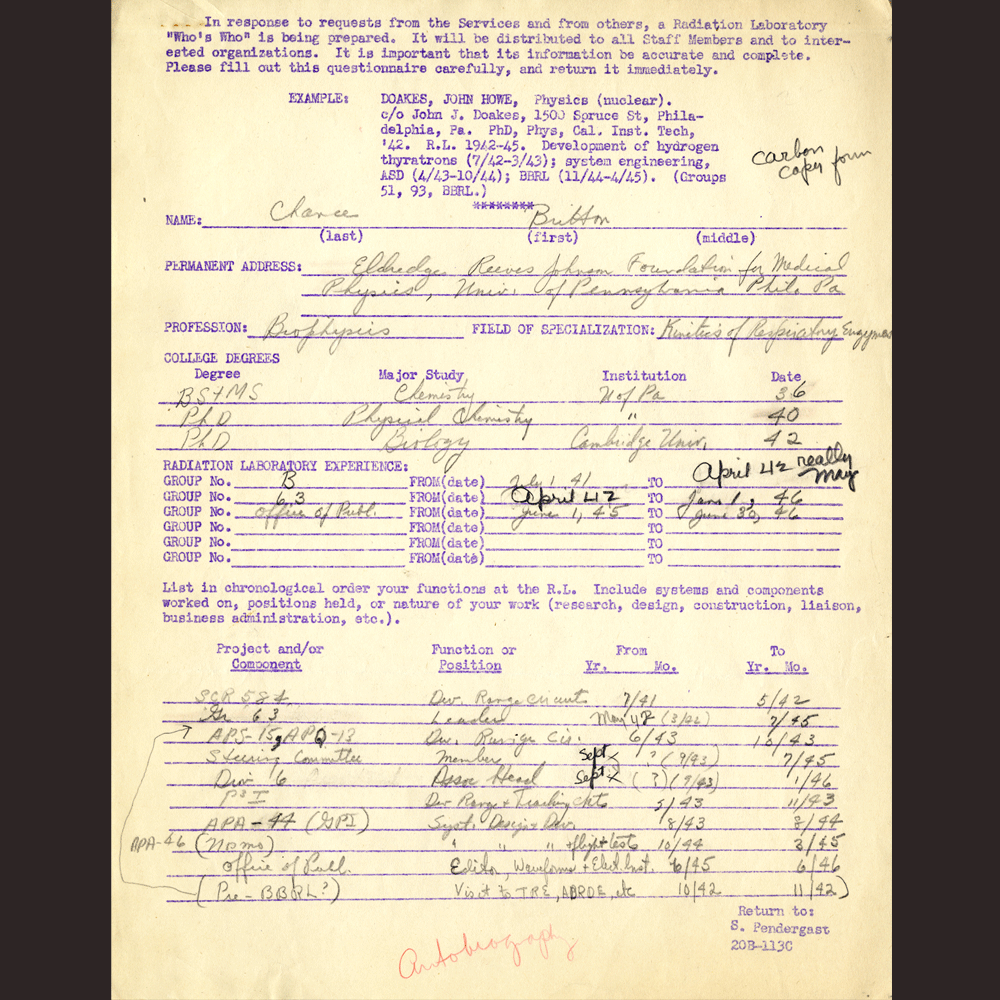 In response to requests from the Services and from others, a Radiation Laboratory
"Who's Who" is being prepared. It will be distributed to all Staff Members and to inter-
ested organizations. It is important that its information be accurate and complete.
Please fill out this questionnaire carefully, and return it immediately.
EXAMPLE: DOAKES, JOHN HOWE, Physics (nuclear).
c/o John J. Doakes, 1500 Spruce St, Phila-
delphia, Pa. PhD, Phys, Cal. Inst. Tech,
'42. R.L. 1942-45. Development of hydrogen
thyratrons (7/42-3/43); system engineering,
ASD (4/43-10/44); BBRL (11/44-4/45). (Groups
51, 93, BBRL.)
carbon
copy form
********
NAME: Chance Britton
(last) (first) (middle)
PERMANENT ADDRESS: Eldredge Reeves Johnson Foundation for Medical
Physics, Univ. of Pennsylvania Phila Pa
PROFESSION: Biophysics FIELD OF SPECIALIZATION: Kinetics of Respiratory Enzymes
COLLEGE DEGREES
Degree Major Study Institution Date
BS+MS Chemistry U of Pa 36
PhD Physical Chemistry " 40
PhD Biology Cambridge Univ. 42
RADIATION LABORATORY EXPERIENCE:
GROUP No. B FROM(date) July 1 41 TO April 42 really May
GROUP No. 63 FROM(date) April 42 TO Jan 1, 46
GROUP No. Office of Publ. FROM(date) June 1, 45 TO June 30, 46
GROUP No. FROM(date) TO
GROUP No. FROM(date) TO
GROUP No. FROM(date) TO
List in chronological order your functions at the R.L. Include systems and components
worked on, positions held, or nature of your work (research, design, construction, liaison,
business administration, etc.).
Project and/or Function or From To
Component Position Yr. Mo. Yr. Mo.
SCR 584 Dev. Range circuits 7/41 5/42
Gr 63 Leader May 42 7/45
APS-15, APQ-13 Dev. Range Cis. 6/43 10/43
Steering Committee Member Sept ? (9/43) 7/45
Div 6 Assoc Head Sept (?) (9/43) 1/46
Dev Range + Tracking ckts 5/43 11/43
APA-44 (GPI) Syst. Design + Dev. 8/43 8/44
APA-46 (Nosmo) " " " + flight tests 10/44 3/45
Office of Publ. Editor, Waveforms + Elect. Inst. 6/45 6/46
(Pre-BBRL?) Visit to TRE, ADRDE, etc 10/42 11/42)
Return to:
S. Pendergast
20B-113C
Autobiography